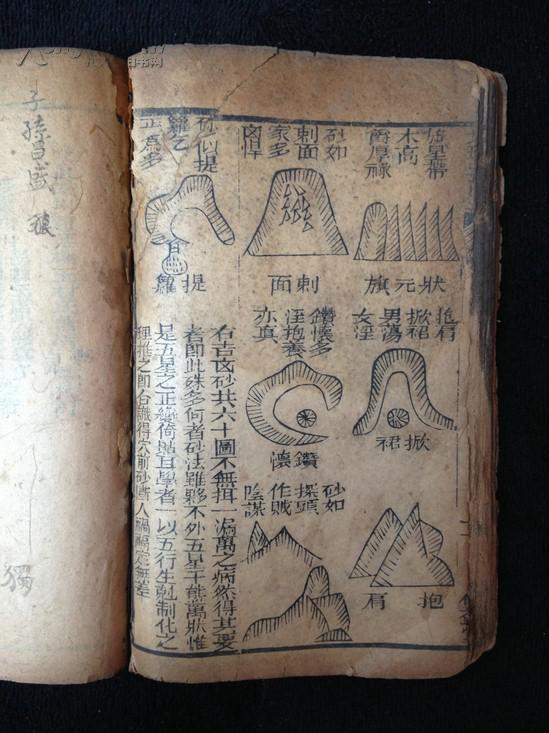 星帶
木高
爵厚祿
狀元旗
砂如
刺面
家多
凶悍
刺面
砂似提
籮乞
正爲多
提籮
抱肩
掀裙
男蕩
女淫
掀裙
鑽懷多
淫抱養
亦真
鑽懷
抱肩
砂如
探頭
作賊
陰謀
右吉凶砂共六十圖不無掛一漏萬之病然得其要
者即此殊多何者砂法雖夥不外五星千能萬狀惟
是五星之正變倚貼耳學者一以五行生剋制化之
理推之即合識得穴前砂斷人禍福定無差
子孫昌盛
獨